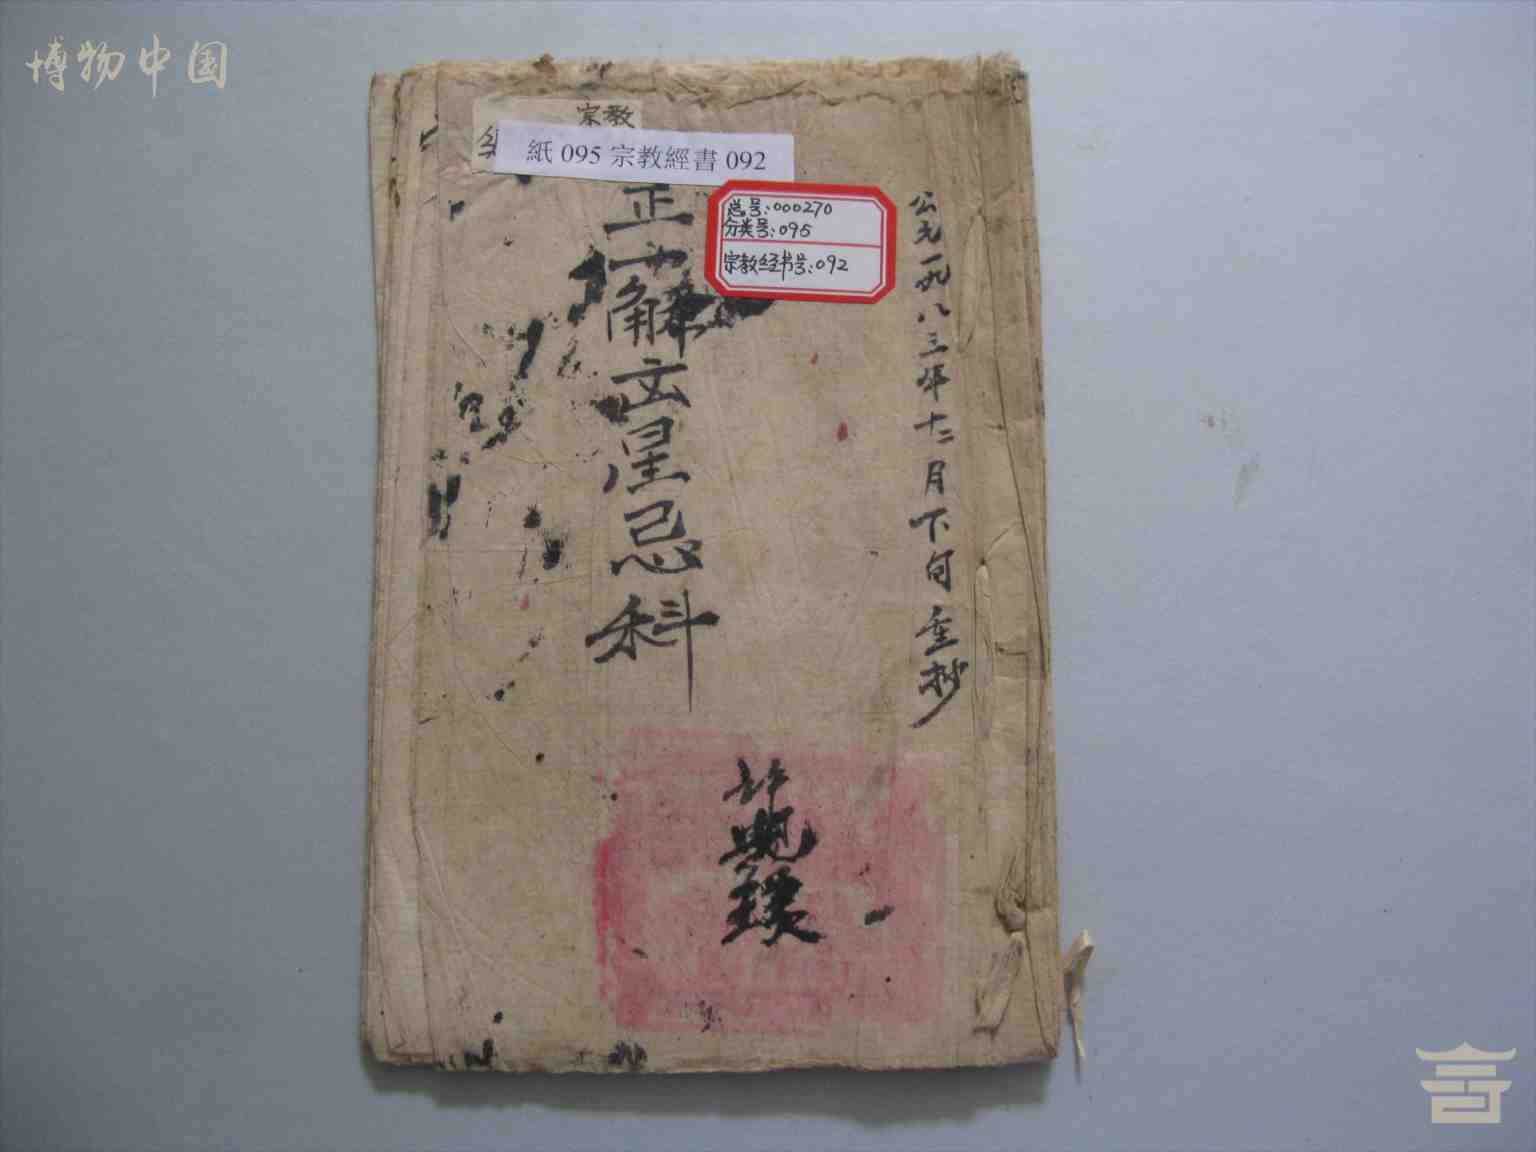 博物中国
宗教
紙 095 宗教經書 092
总号:000270
分类号:095
宗教经书号:092
公元一九八三年十二月下旬重抄
正一解玄星忌科